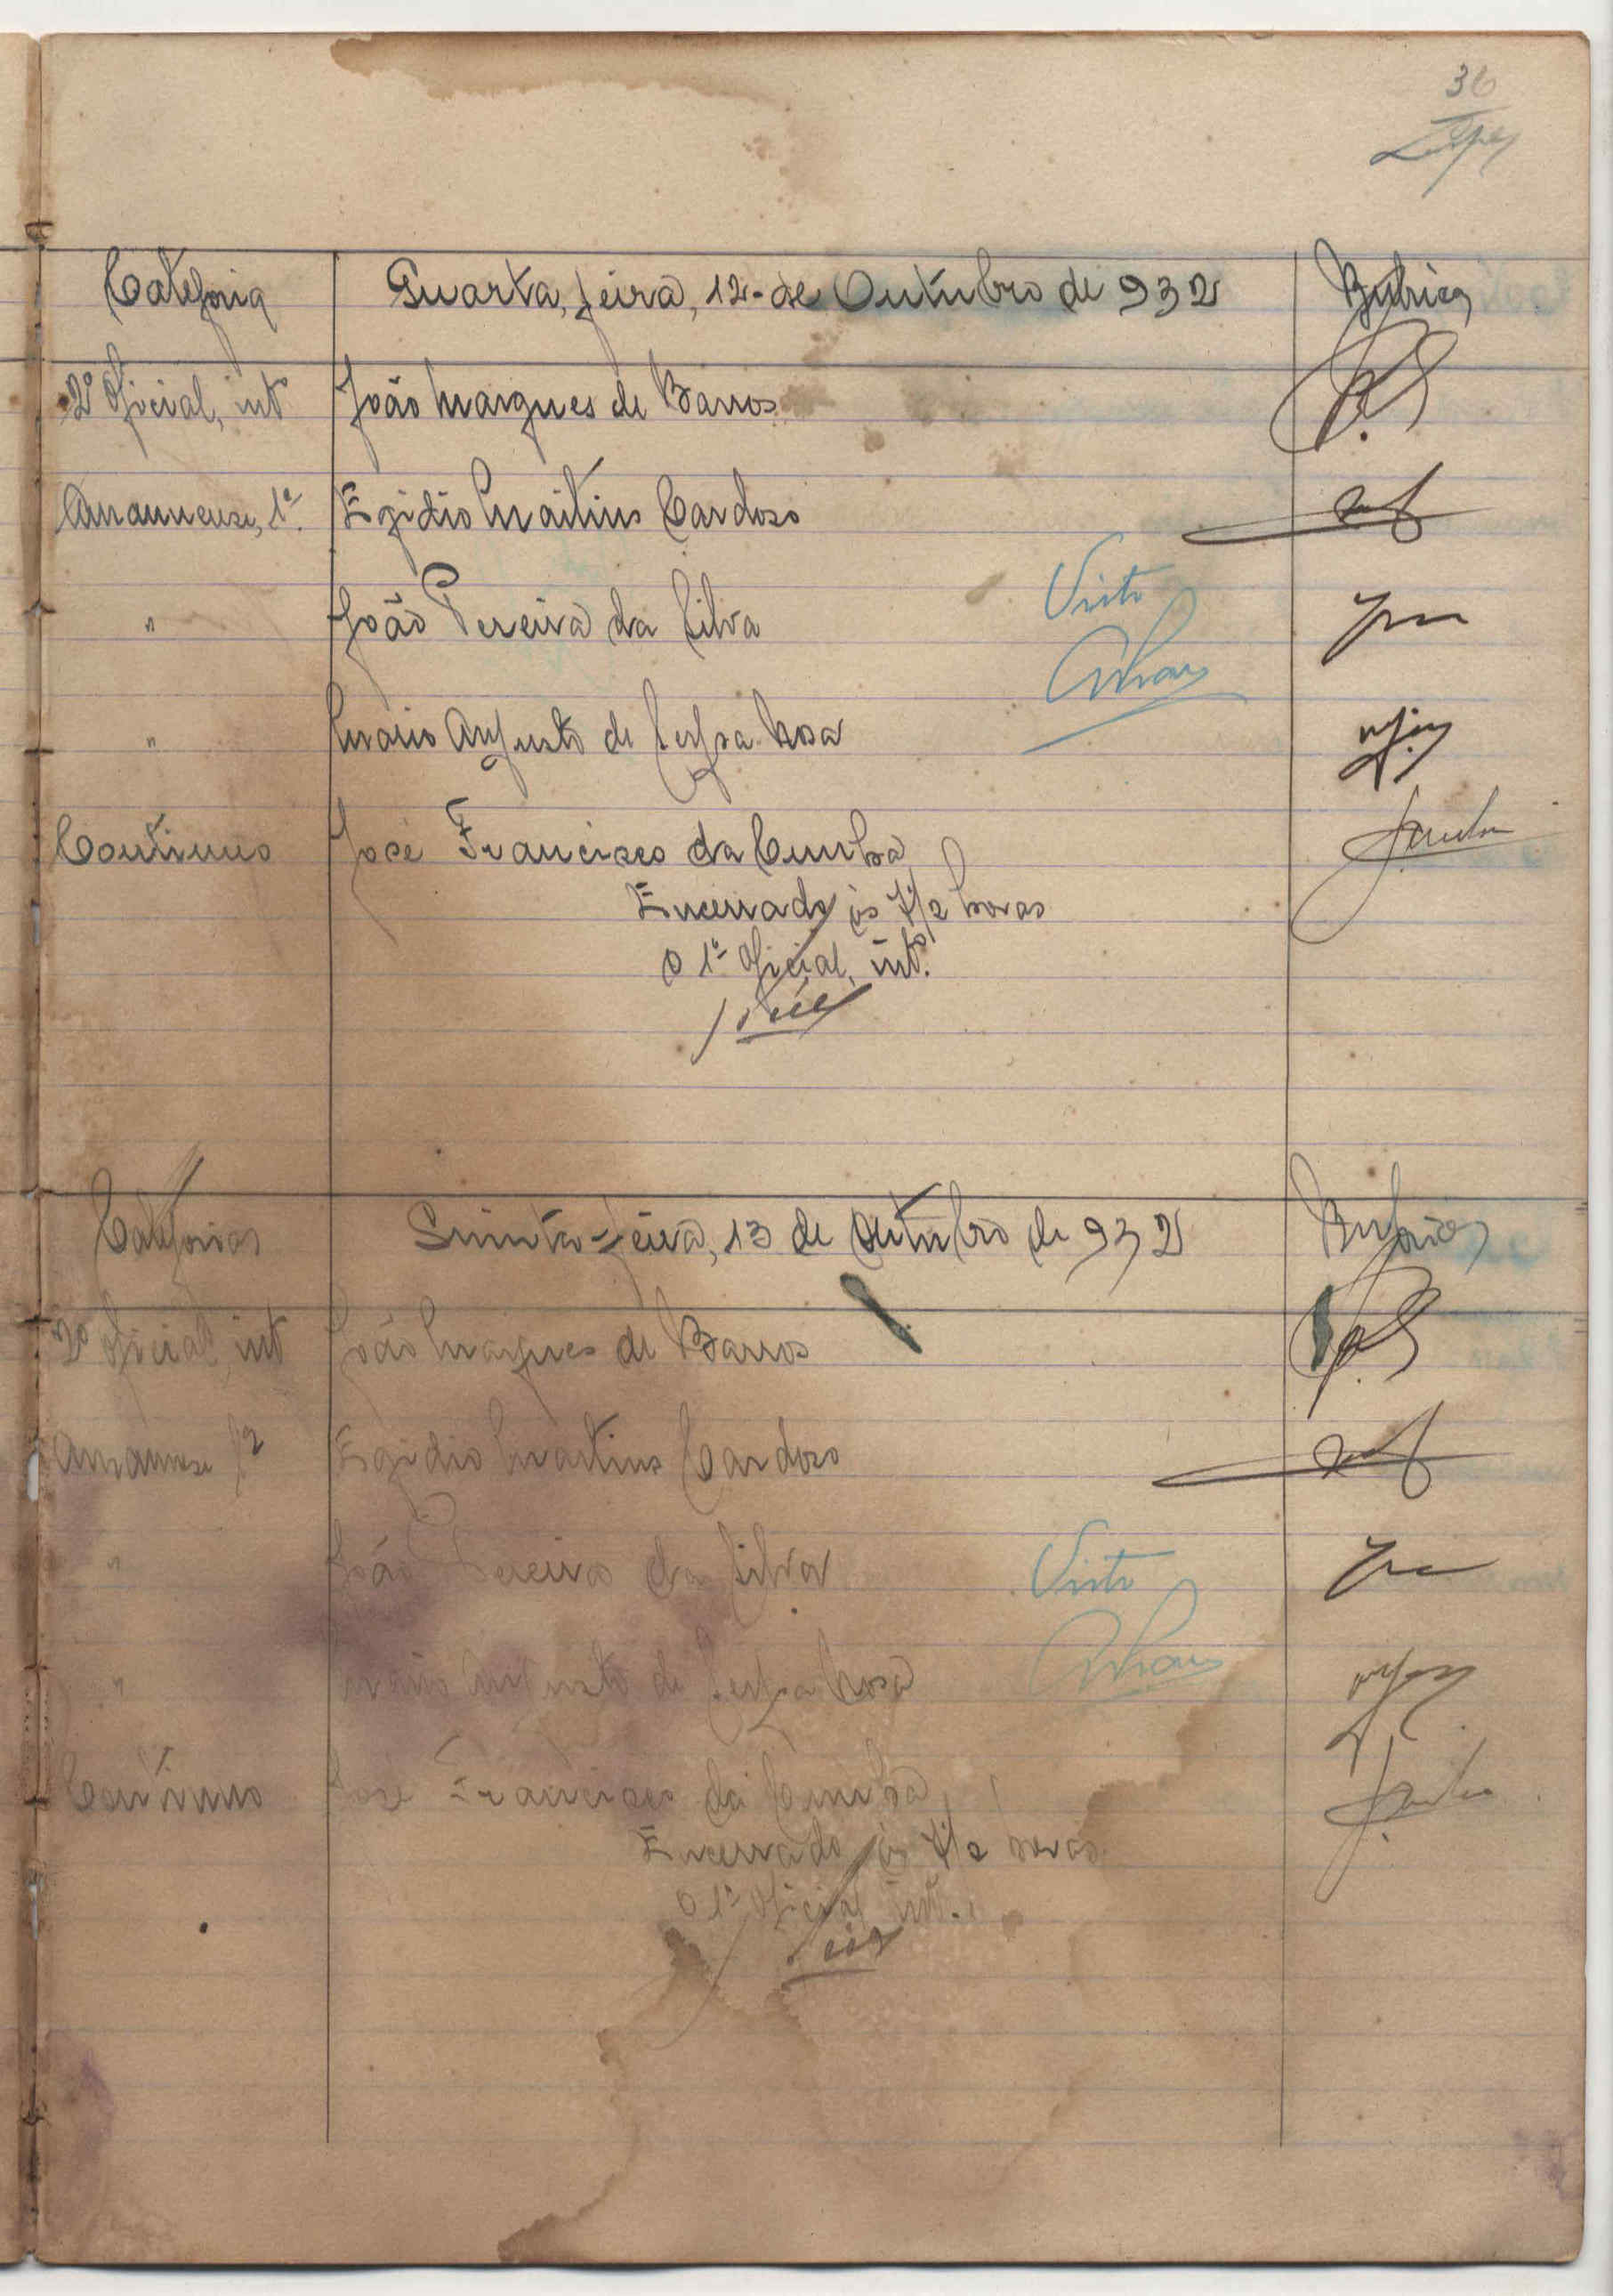 36
Lopes
Categoria Quarta, feira, 12 de Outubro de 932 Rubricas
2º Oficial, intº João Marques de Barros
Amanuense, 1ª Egidio Martins Cardoso
" João Pereira da Silva Visto
" Mário Augusto de Rosa
Continuo José Francisco da Cunha
Encerrado ás 7 1/2 horas
O 1º Oficial, intº.
Categorias Quinta-feira, 13 de Outubro de 932 Rubricas
2º Oficial, intº João Marques de Barros
Amanuense Egidio Martins Cardoso
" João Pereira da Silva Visto
" Mário Augusto de Rosa
Continuo José Francisco da Cunha
Encerrado ás 7 1/2 horas
O 1º Oficial intº.